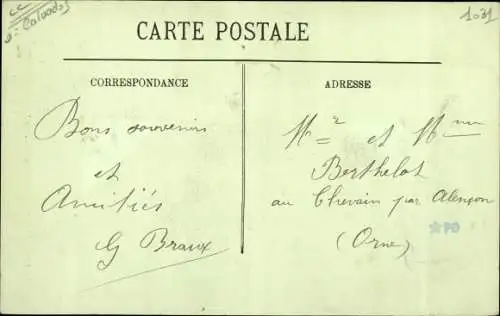 Calvados
1031
CARTE POSTALE
CORRESPONDANCE
Bons souvenirs
et
Amitiés
G Braux
ADRESSE
Mr et Mme
Berthelot
au Chevain par Alençon
(Orne)
PO